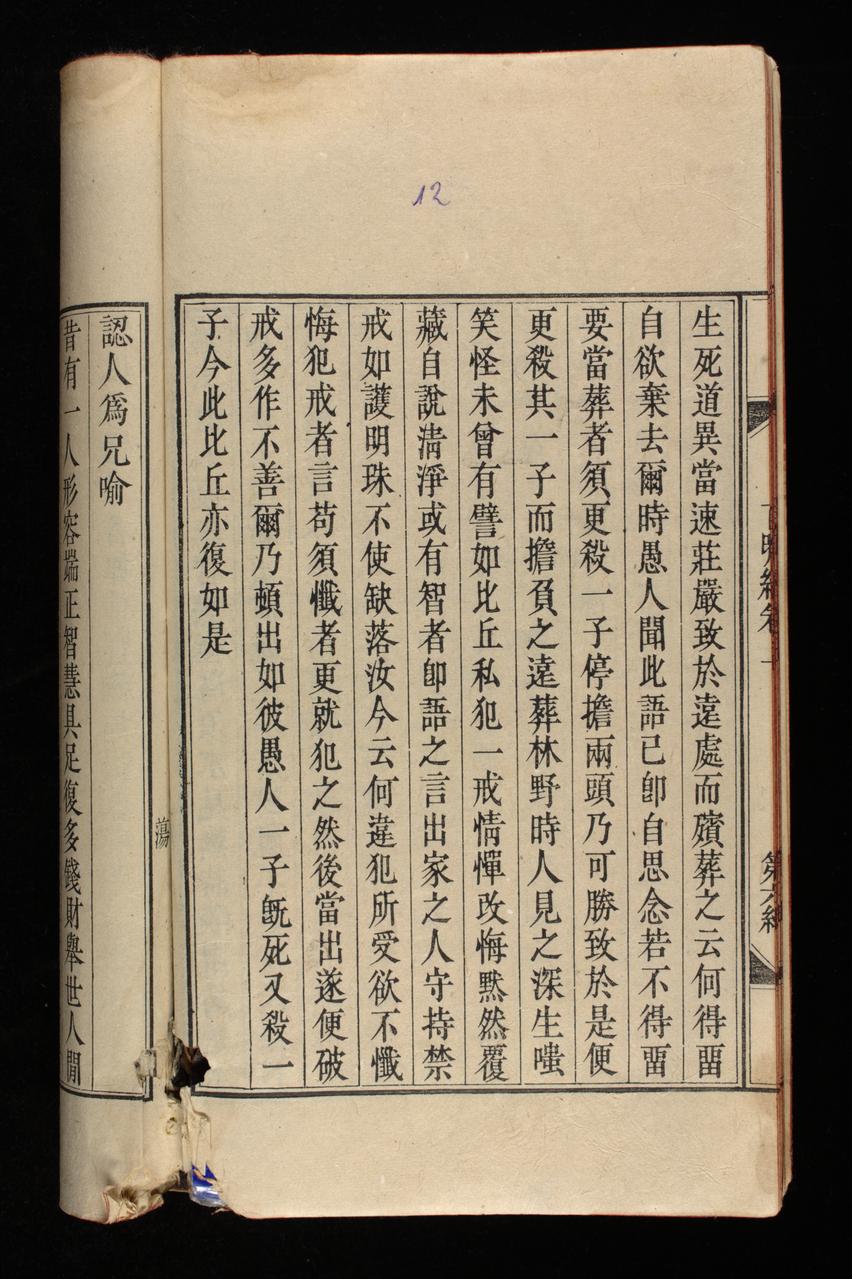 12
生死道異當速莊嚴致於遠處而殯葬之云何得畱
自欲棄去爾時愚人聞此語已卽自思念若不得畱
要當葬者須更殺一子停擔兩頭乃可勝致於是便
更殺其一子而擔負之遠葬林野時人見之深生嗤
笑怪未曾有譬如比丘私犯一戒情憚改悔默然覆
藏自說淸淨或有智者卽語之言出家之人守持禁
戒如護明珠不使缺落汝今云何違犯所受欲不懺
悔犯戒者言苟須懺者更就犯之然後當出遂便破
戒多作不善爾乃頓出如彼愚人一子旣死又殺一
子今此比丘亦復如是
蕩
認人爲兄喻
昔有一人形容端正智慧具足復多錢財舉世人間